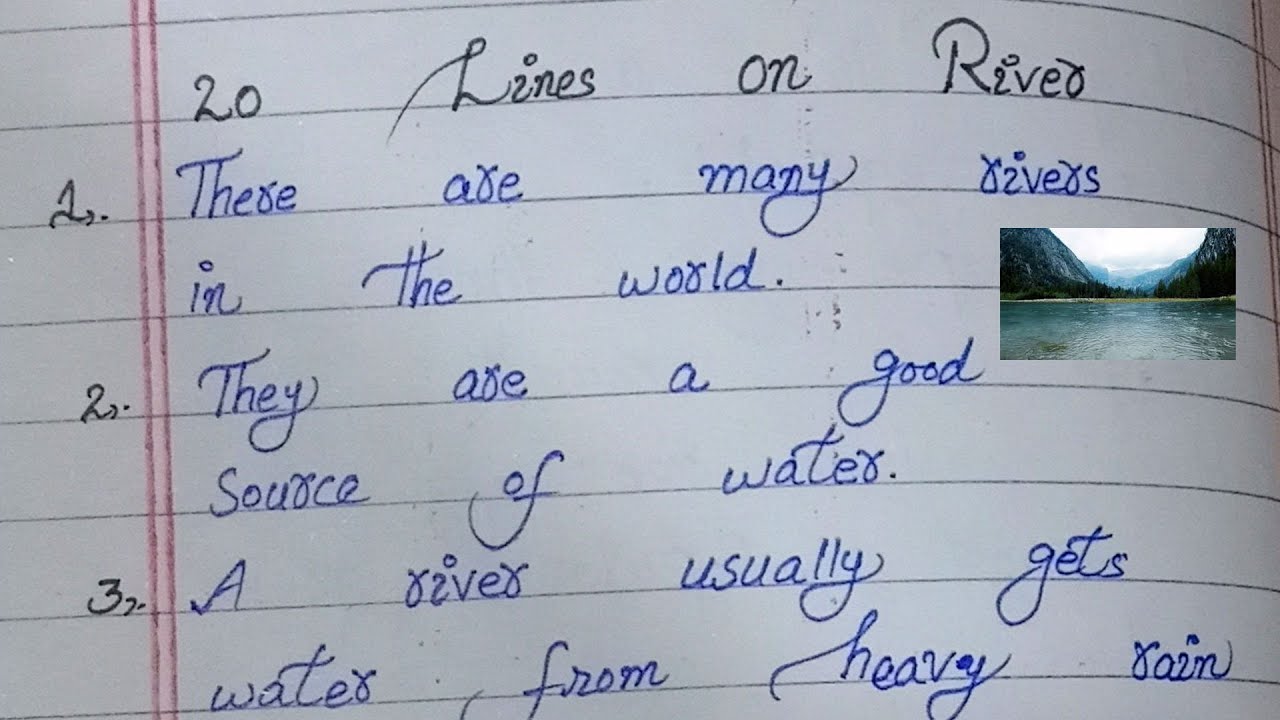 20 Lines on River
1. There are many rivers
in the world.
2. They are a good
source of water.
3. A river usually gets
water from heavy rain